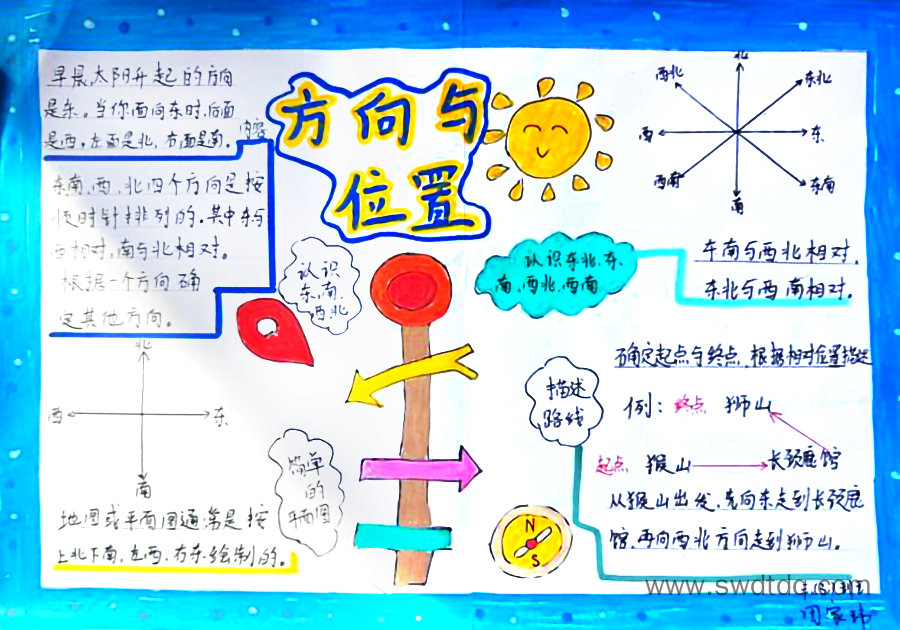 方向与
位置
早晨太阳升起的方向
是东。当你面向东时,后面
是西,左面是北,右面是南。
内容
东南、西、北四个方向是按
顺时针排列的。其中东与
西相对,南与北相对。
根据一个方向确
定其他方向。
认识
东、南、
西北
北
西
东
南
简单
的
平面图
地图或平面图通常是按
上北下南,左西、右东绘制的。
北
西北
东北
西
东
西南
东南
南
认识东北、东
南、西北、西南
东南与西北相对。
东北与西南相对。
描述
路线
确定起点与终点,根据相对位置描述
例:终点 狮山
起点 猴山
长颈鹿馆
从猴山出发,先向东走到长颈鹿
馆,再向西北方向走到狮山。
N
S
www.swdtdq.com